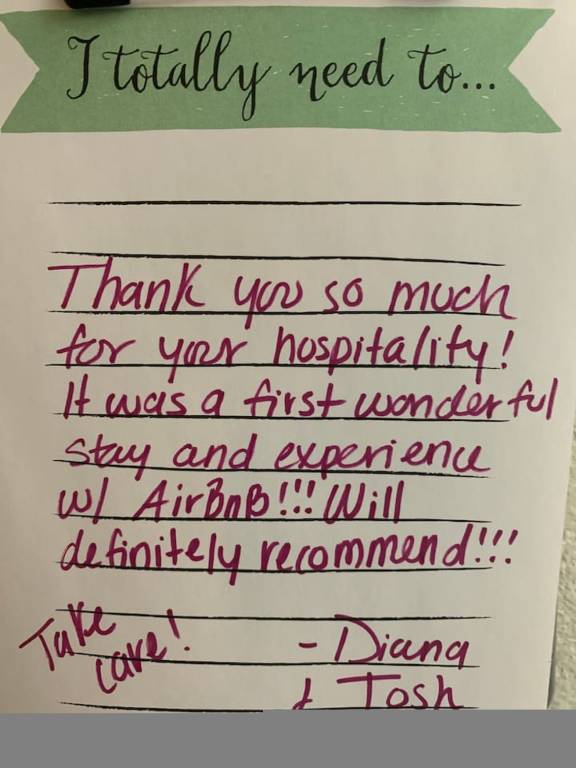 I totally need to...
Thank you so much
for your hospitality!
It was a first wonderful
stay and experience
w/ AirBnB!!! Will
definitely recommend!!!
Take
care!
- Diana
+ Tosh